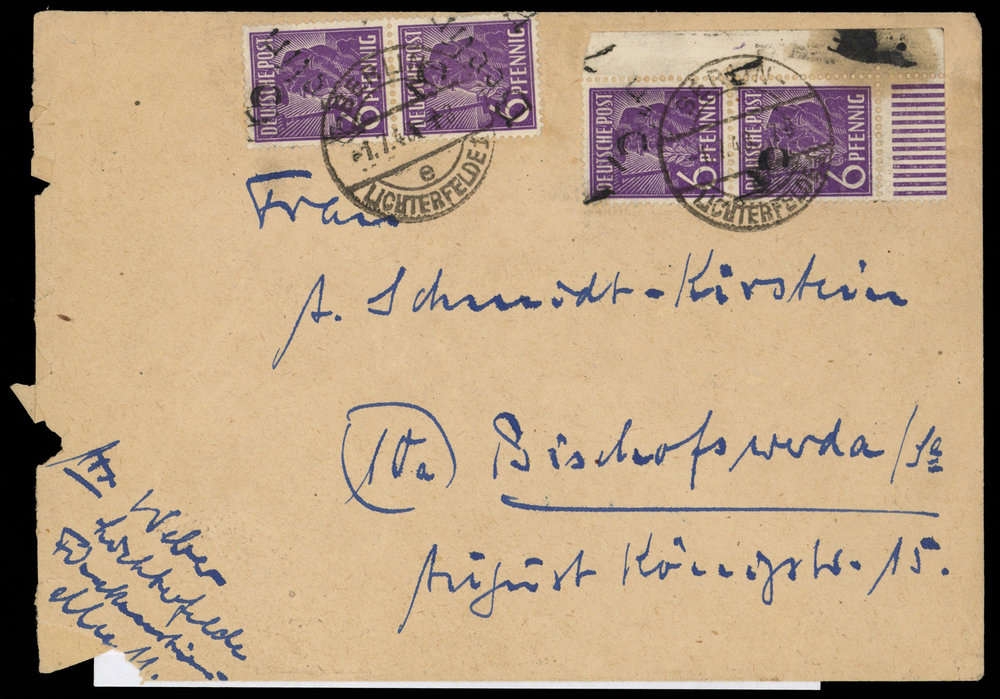 DEUTSCHE POST 6 PFENNIG
DEUTSCHE POST 6 PFENNIG
DEUTSCHE POST 6 PFENNIG
DEUTSCHE POST 6 PFENNIG
BERLIN
-1.7.4
e
LICHTERFELDE 1
BERLIN
LICHTERFELDE
Frau
A. Schmidt-Kirstein
(10a) Bischofswerda/Sa
August Königstr. 15.
Weber
Lichterfelde
11.